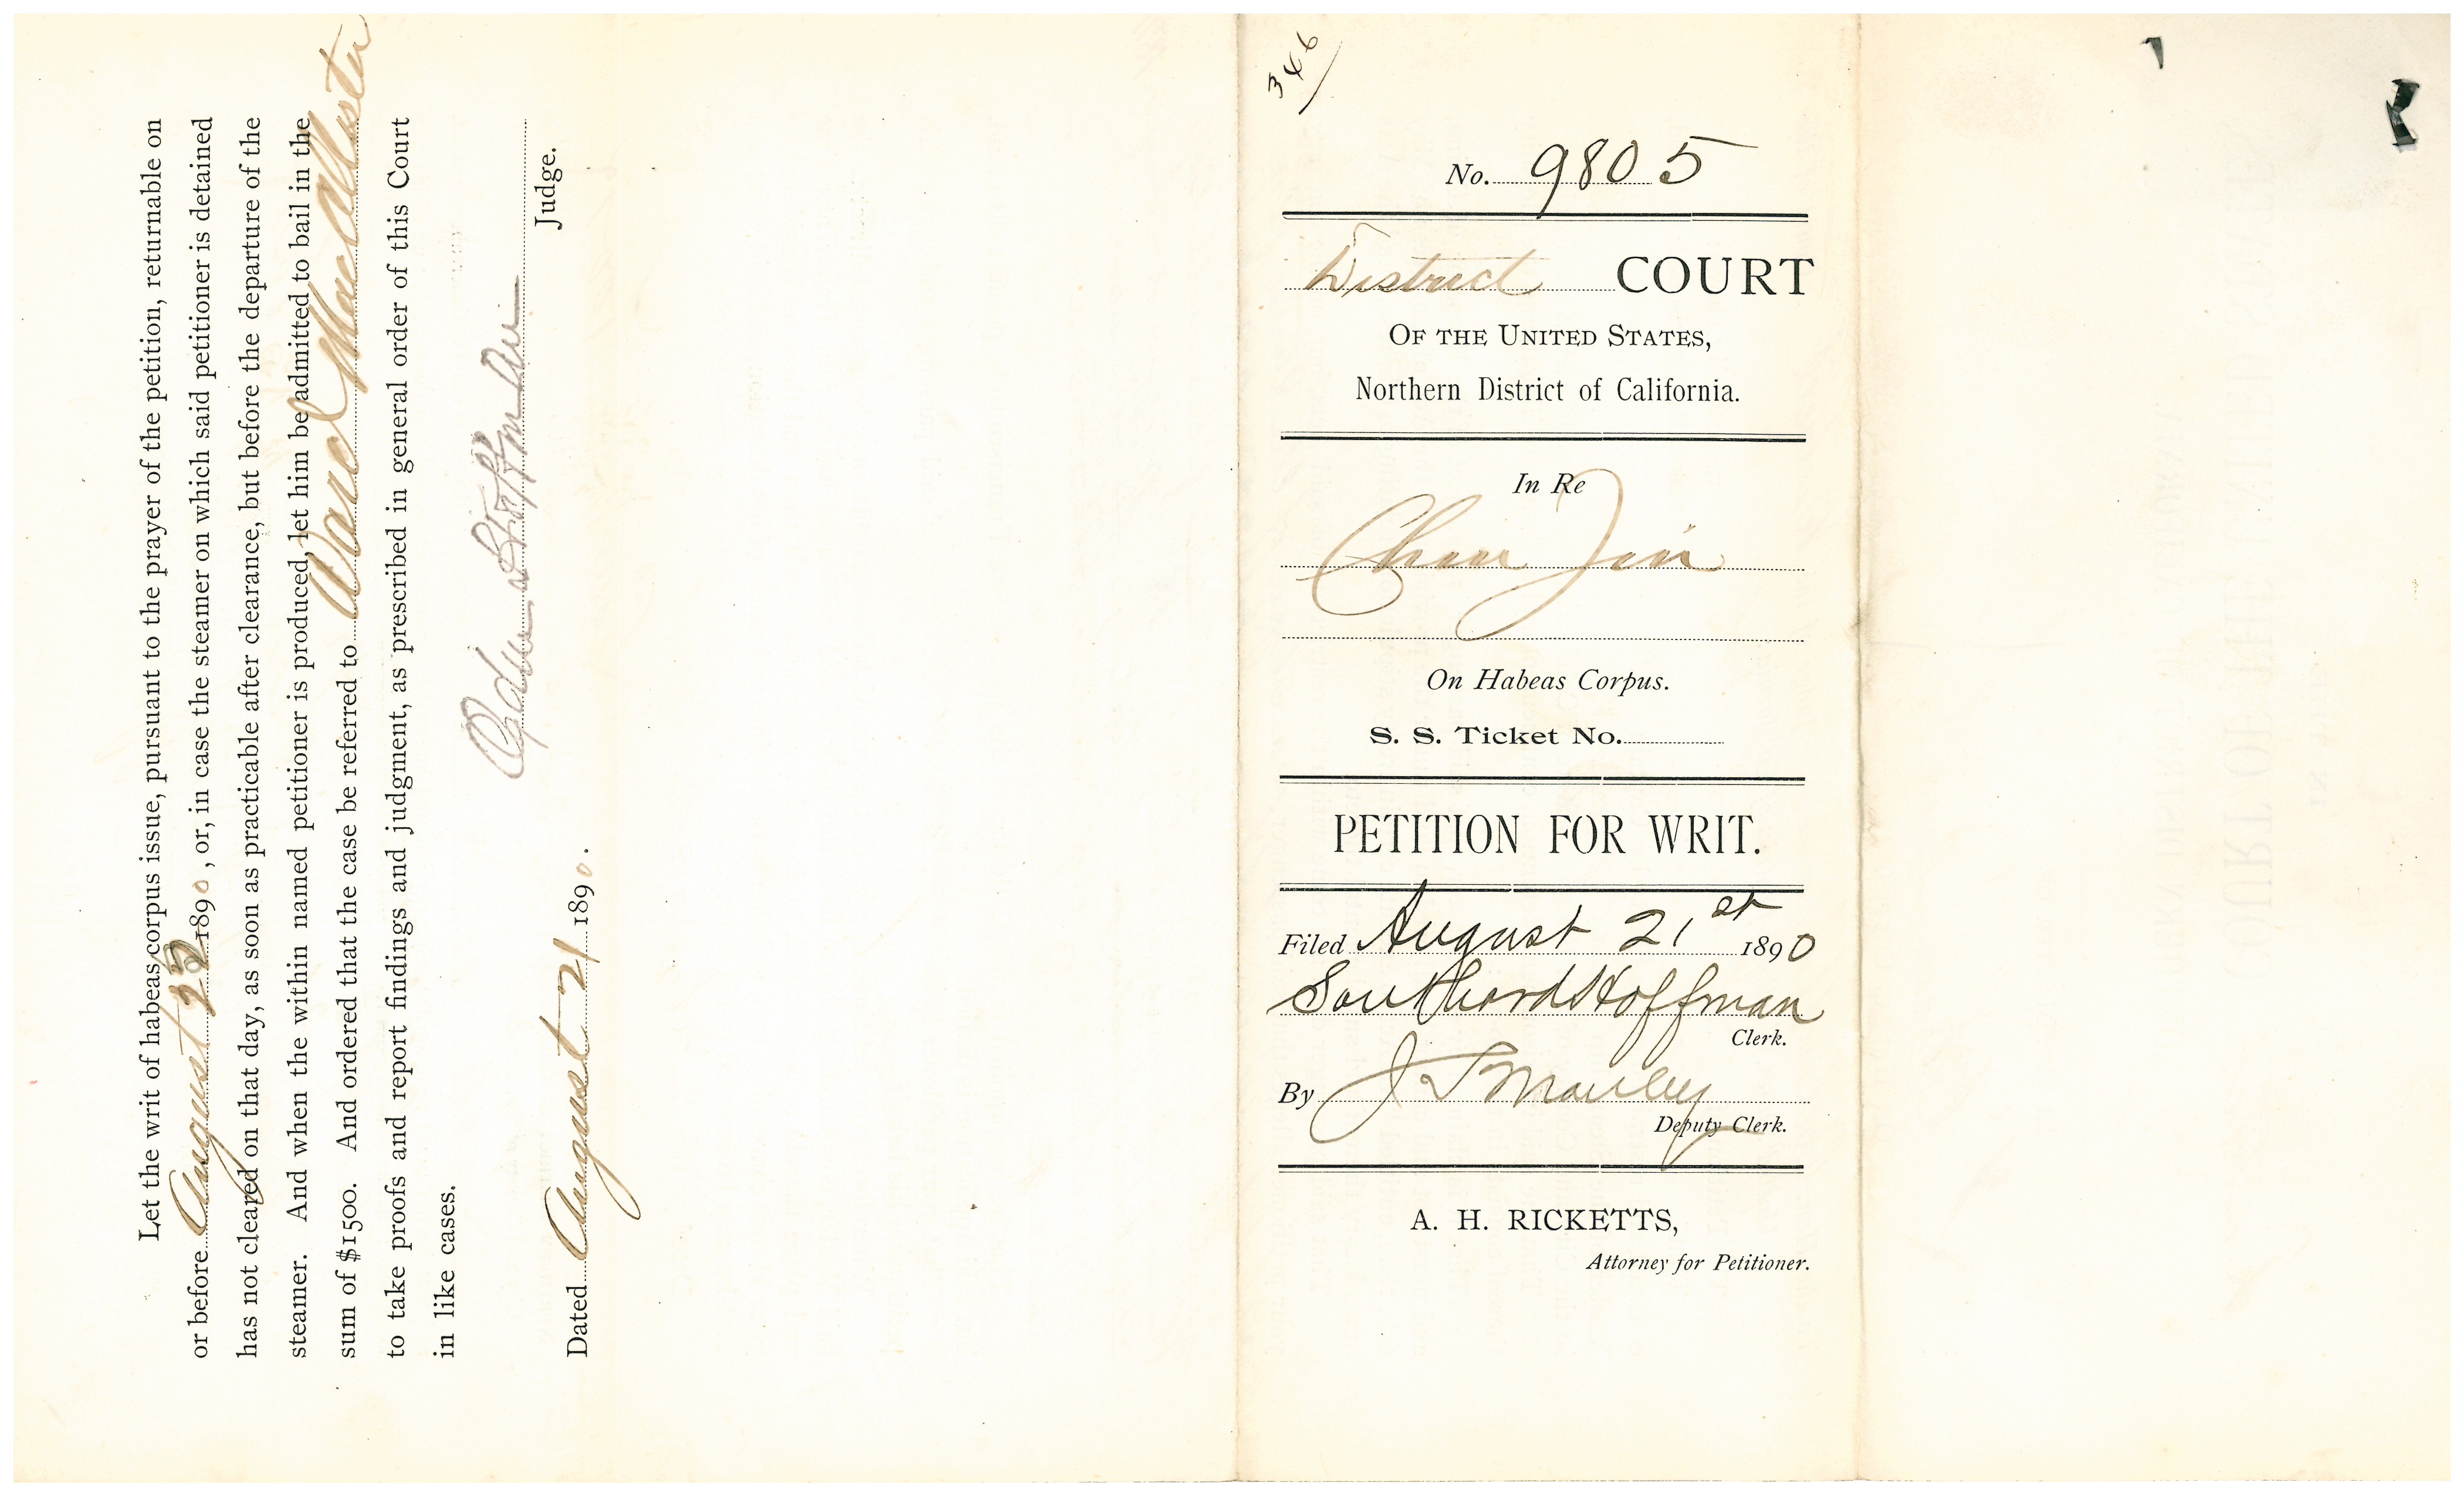 Let the writ of habeas corpus issue, pursuant to the prayer of the petition, returnable on
or before August 22 1890, or, in case the steamer on which said petitioner is detained
has not cleared on that day, as soon as practicable after clearance, but before the departure of the
steamer. And when the within named petitioner is produced, let him be admitted to bail in the
sum of $1500. And ordered that the case be referred to Ward MacAllister
to take proofs and report findings and judgment, as prescribed in general order of this Court
in like cases.
Hoffman
Judge.
Dated August 21 1890.
346
No. 9805
District COURT
OF THE UNITED STATES,
Northern District of California.
In Re
Chan Jin
On Habeas Corpus.
S. S. Ticket No.
PETITION FOR WRIT.
Filed August 21st 1890
Southard Hoffman
Clerk.
By J. S. Manley
Deputy Clerk.
A. H. RICKETTS,
Attorney for Petitioner.